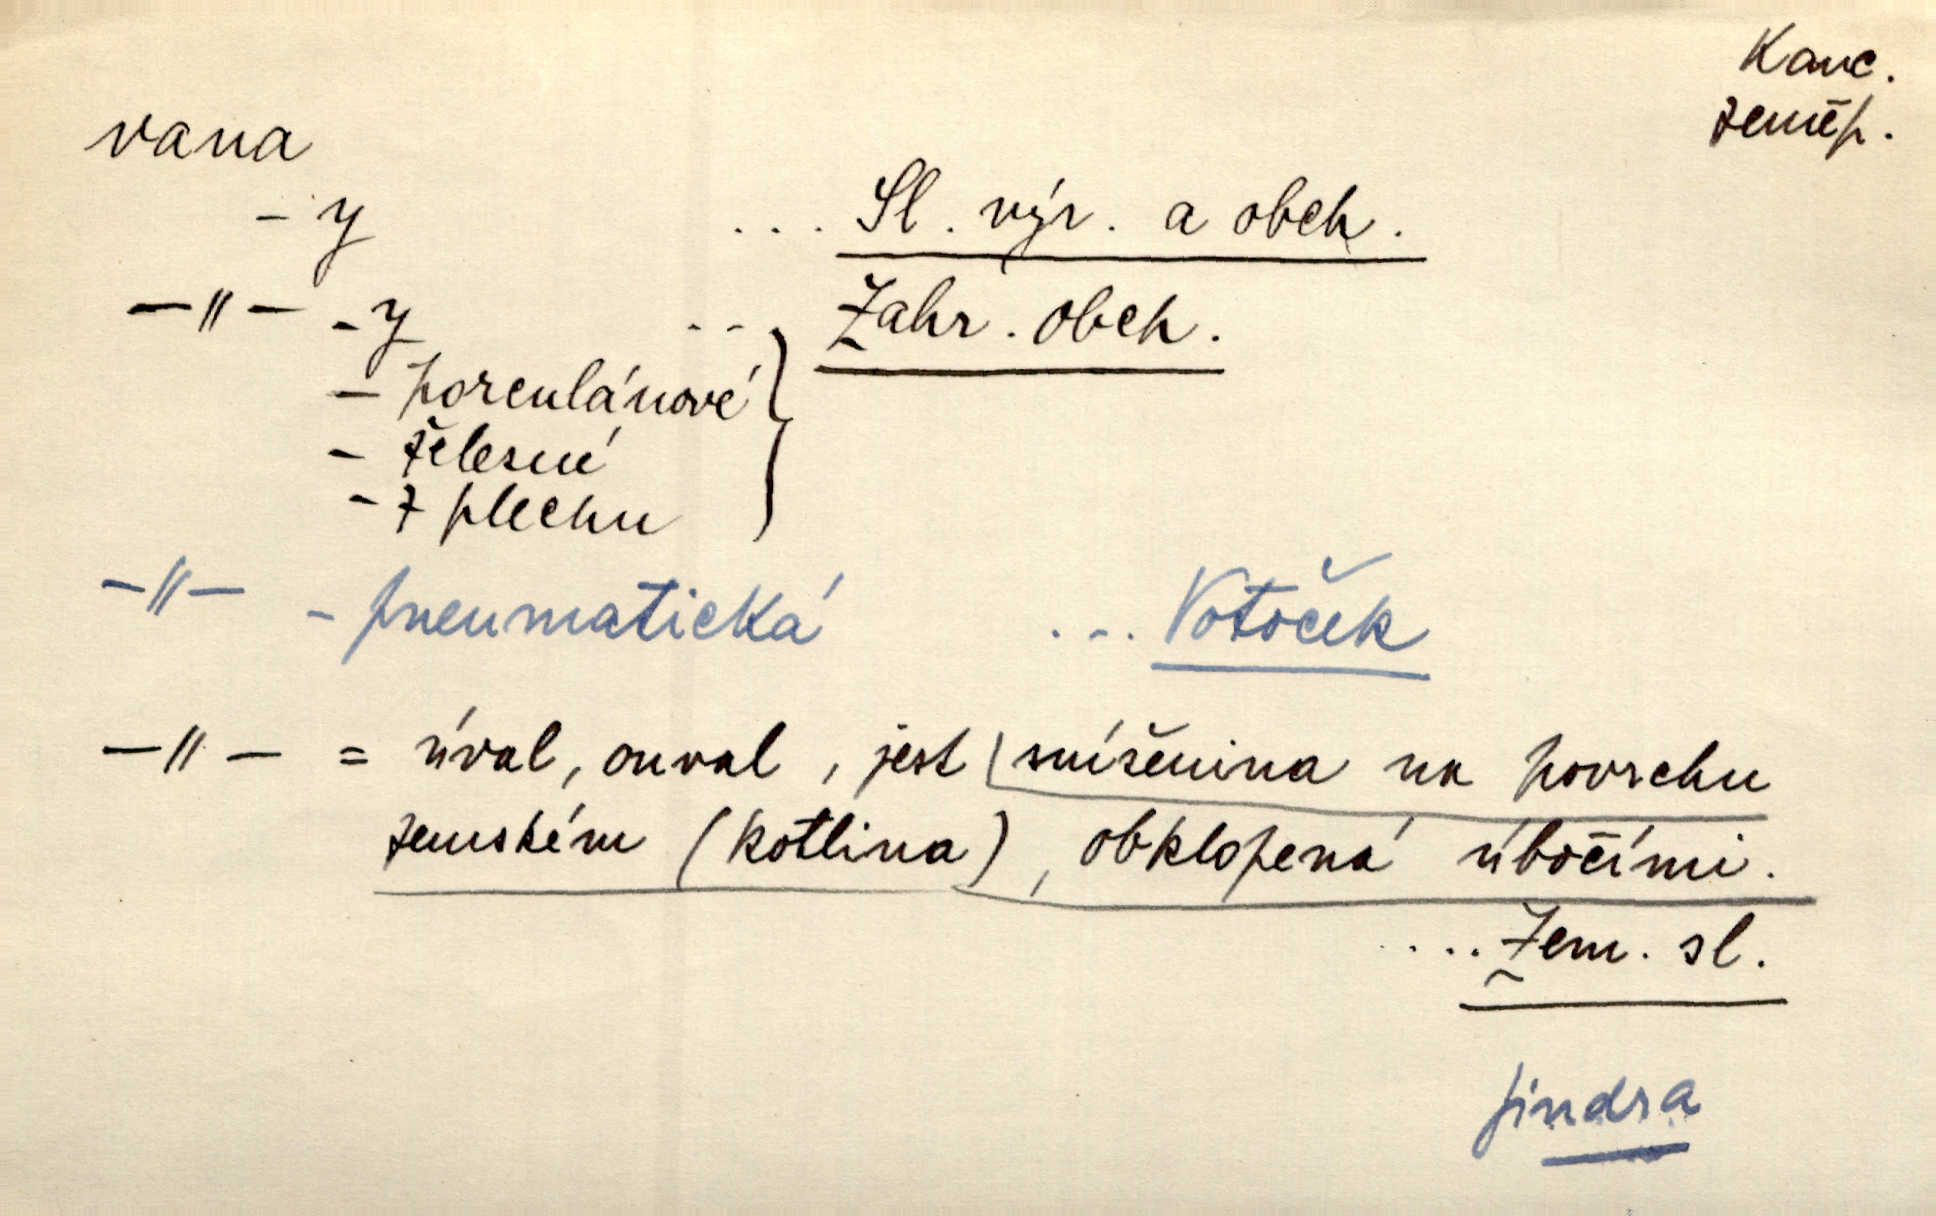 Kanc.
zeměp.
vana
- y .... Sl. výr. a obch.
—〃— - y ... Zahr. obch.
- porculánové
- želesné
- z plechu
—〃— - pneumatická ... Votoček
—〃— = úval, ouval, jest sníženina na povrchu
zemském (kotlina), obklopená úbočími.
.... Zem. sl.
Jindra